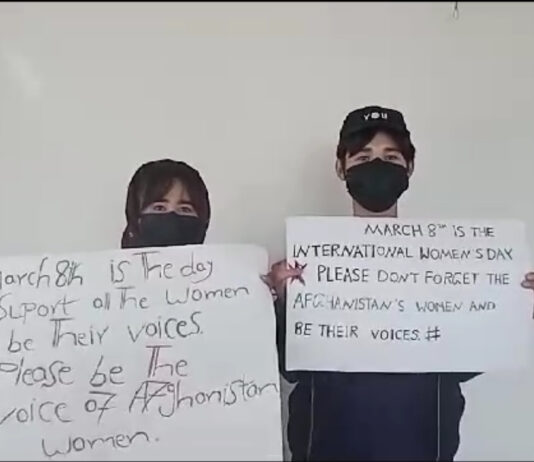 YOU
March 8th is The day
Support all The Women
be Their voices.
Please be The
voice of Afghanistan
women.
MARCH 8TH IS THE
INTERNATIONAL WOMEN'S DAY
PLEASE DONT FORGET THE
AFGHANISTAN'S WOMEN AND
BE THEIR VOICES.#